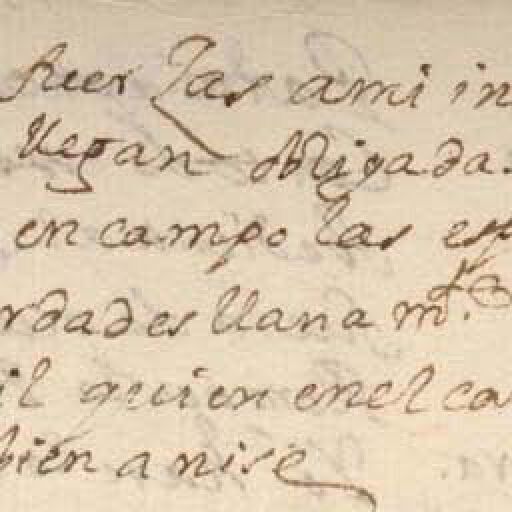 fuerzas ami in
llegan obligada.
en campo las esp
rdades llana m.te
il quien enel ca
bien a nise